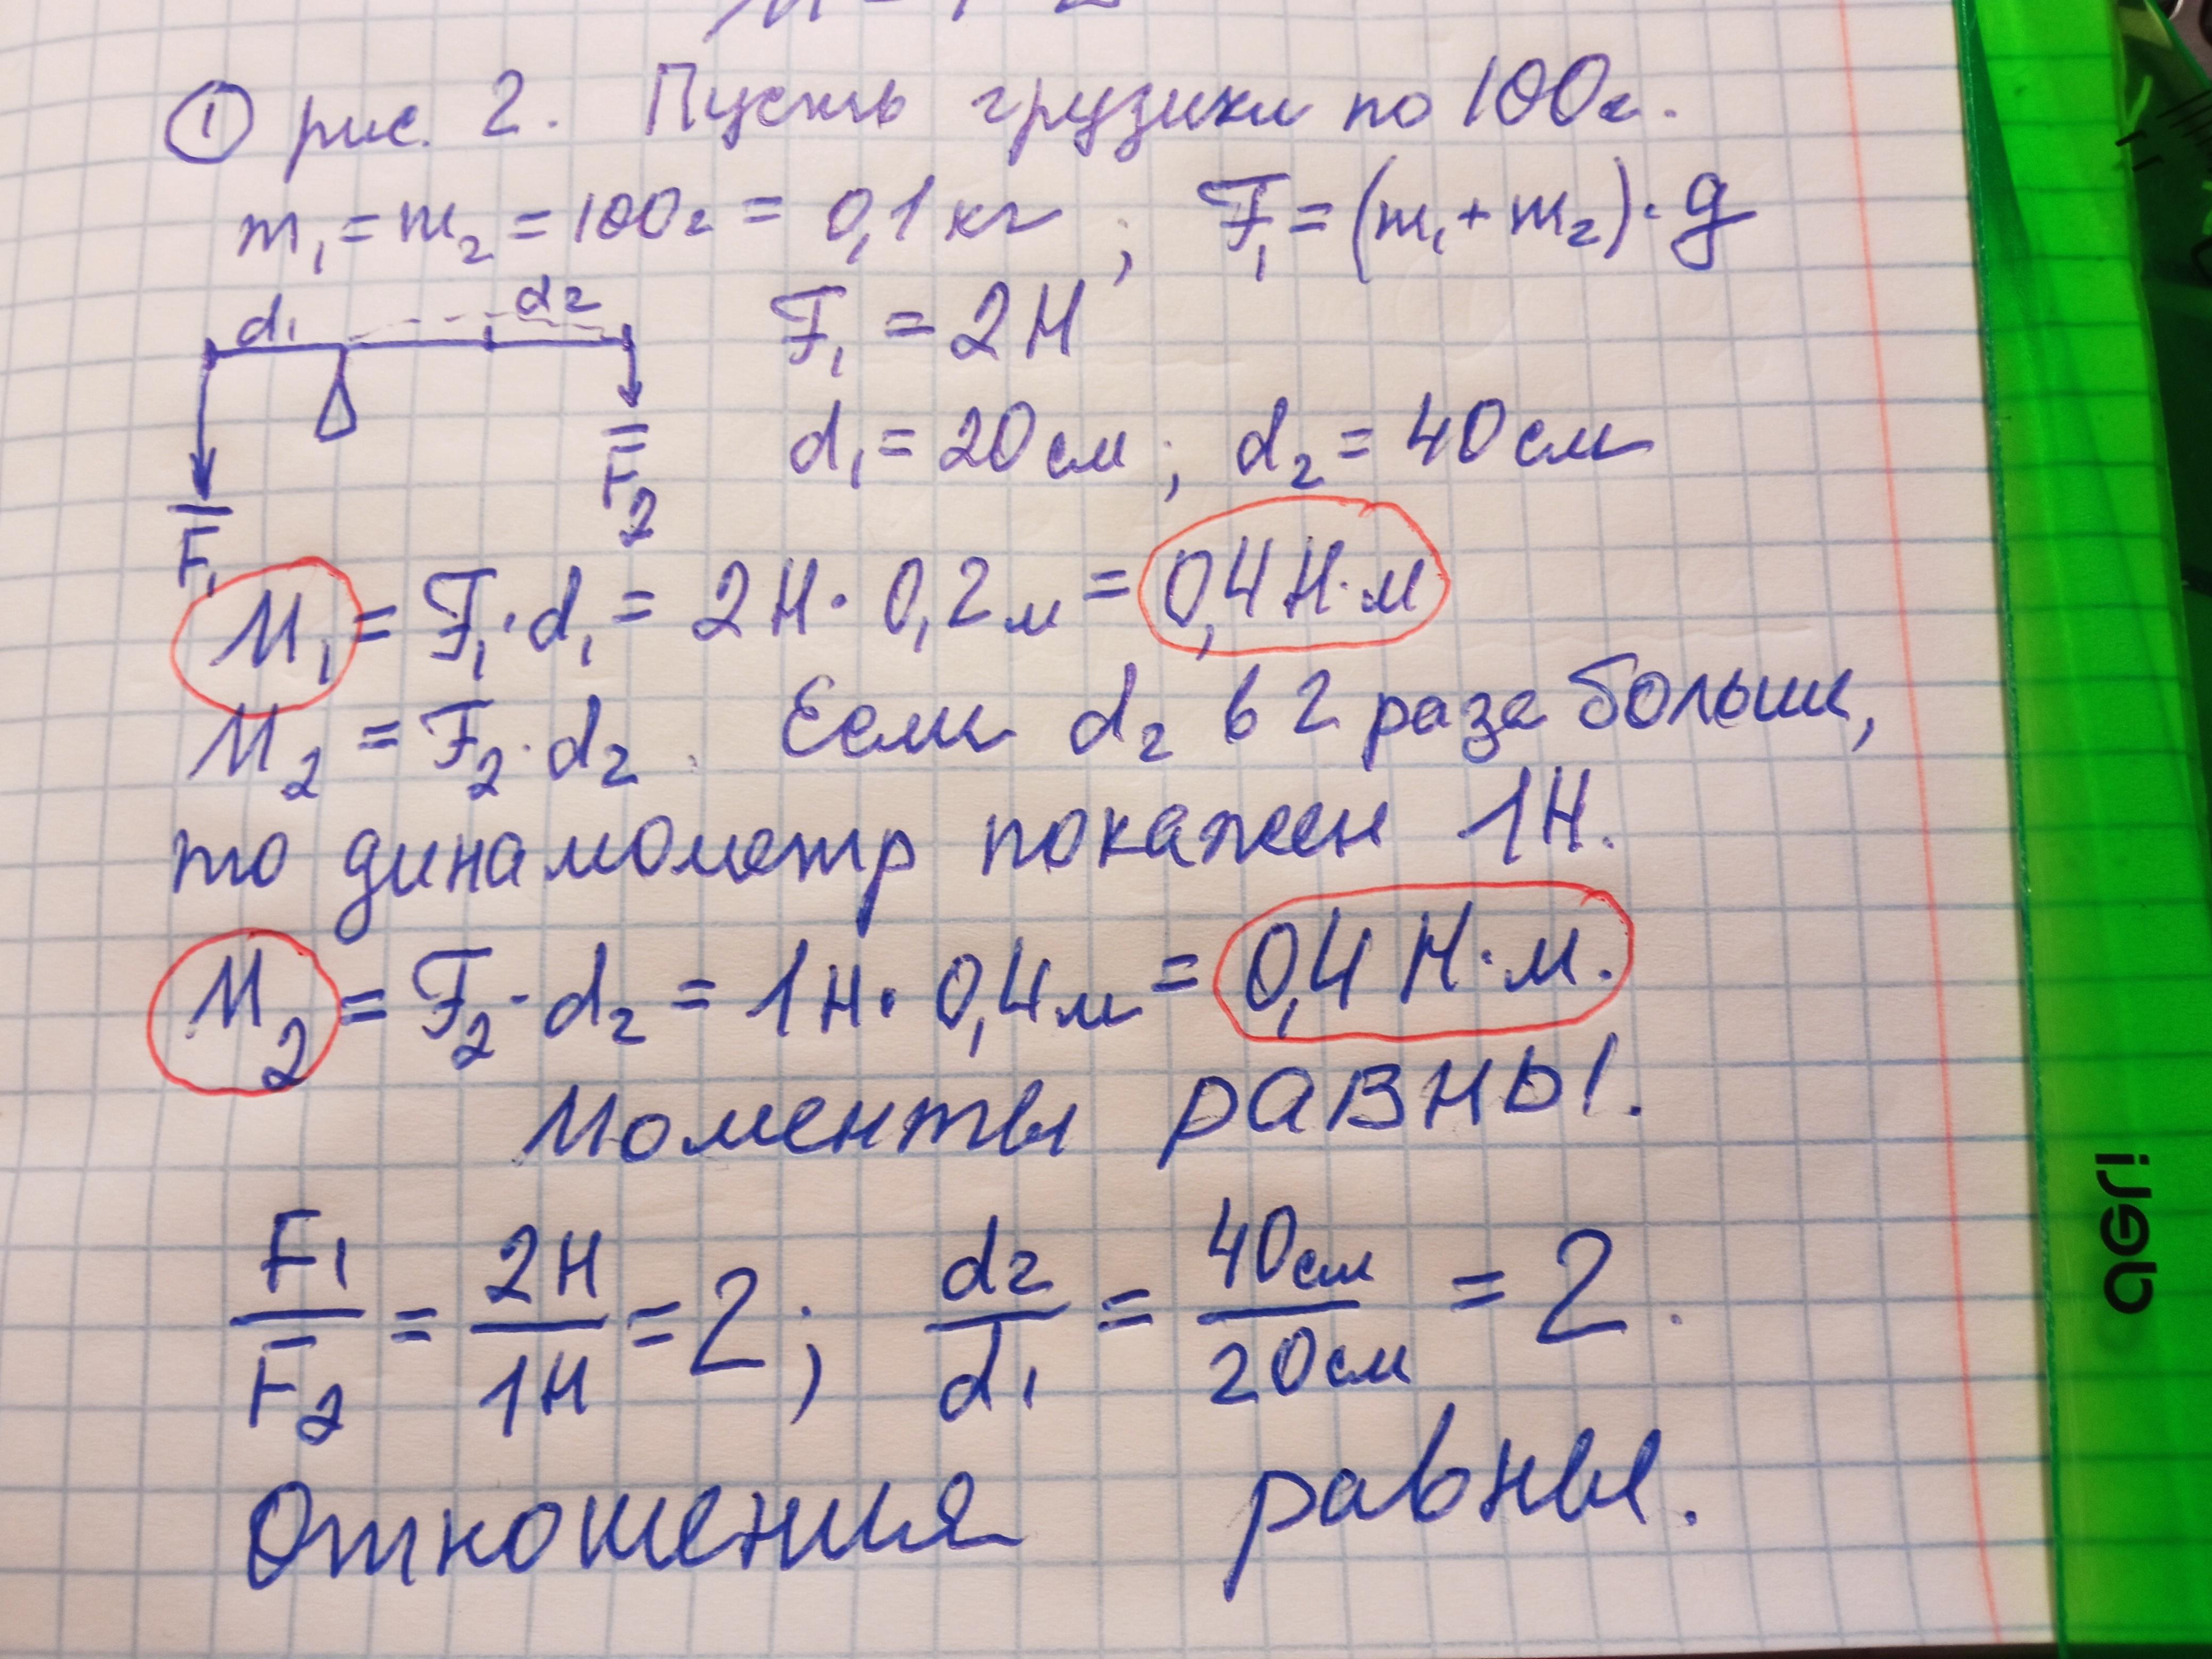 ① рис. 2. Пусть грузики по 100г.
m₁ = m₂ = 100г = 0,1 кг ; F₁ = (m₁ + m₂) · g
d₁ d₂ F₁ = 2 Н
d₁ = 20 см ; d₂ = 40 см
F₁ F₂
M₁ = F₁ · d₁ = 2 Н · 0,2 м = 0,4 Н · м
M₂ = F₂ · d₂ . Если d₂ в 2 раза больше,
то динамометр покажет 1 Н.
M₂ = F₂ · d₂ = 1 Н · 0,4 м = 0,4 Н · м.
Моменты равны.
F₁/F₂ = 2Н/1Н = 2 ; d₂/d₁ = 40см/20см = 2 .
Отношения равны.